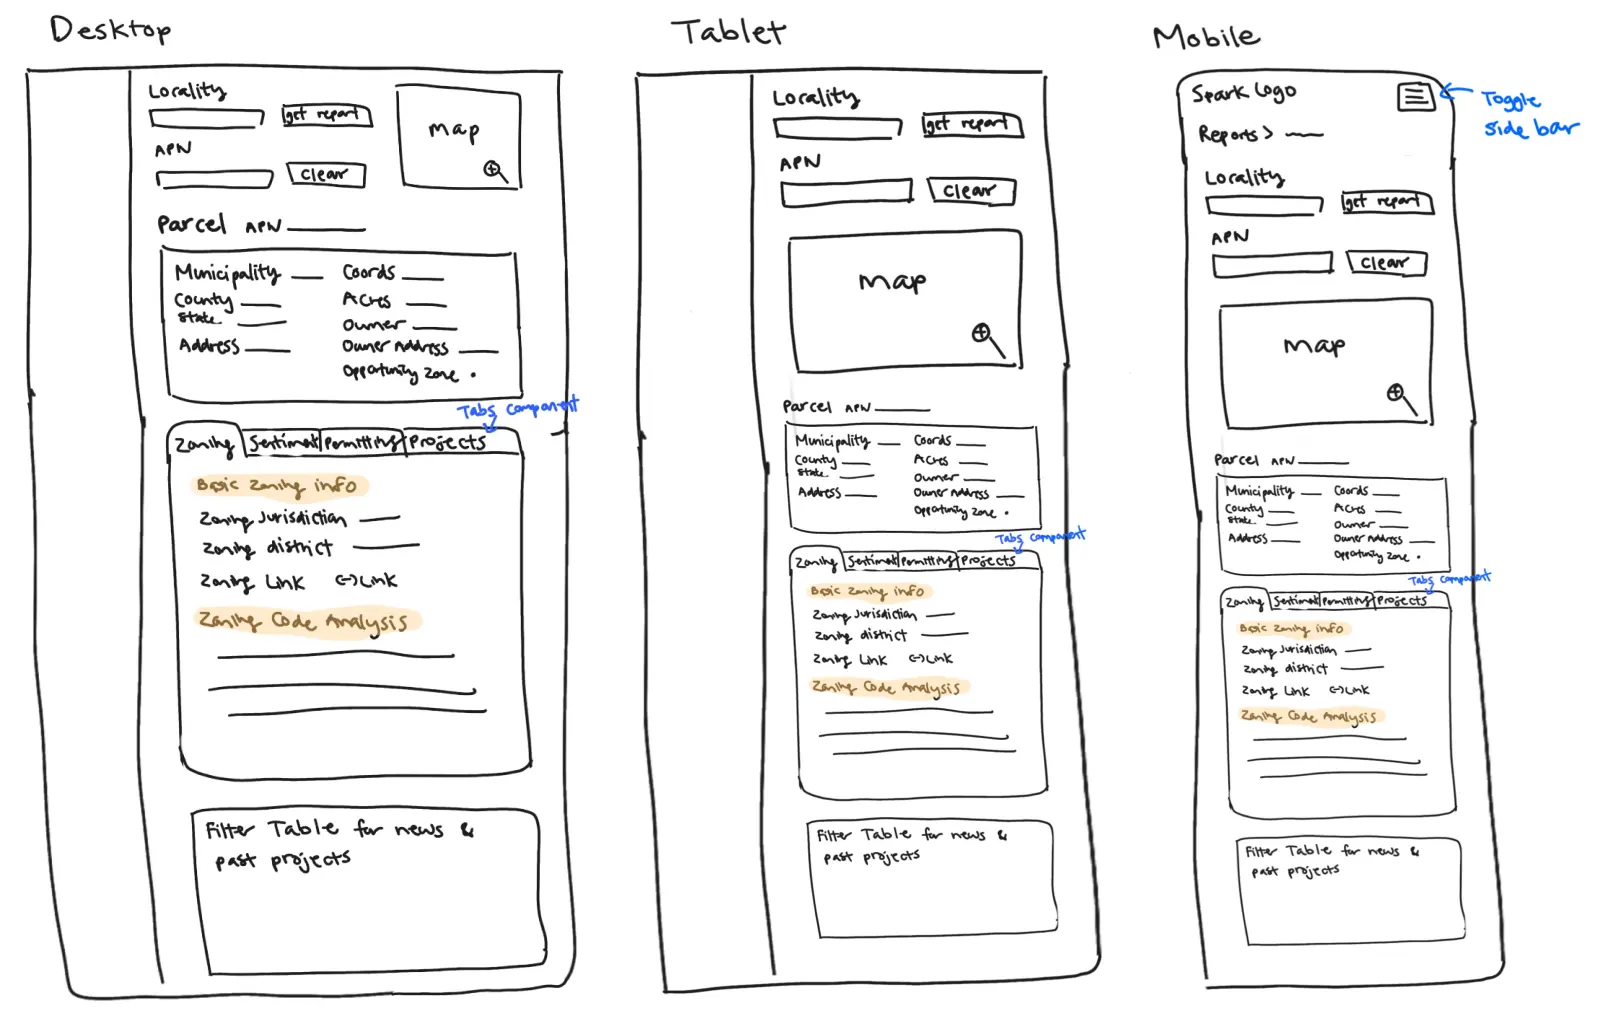 Desktop
Locality
get report
APN
clear
map
Parcel APN
Municipality
County
State
Address
Coords
Acres
Owner
Owner Address
Opportunity Zone
Tabs component
Zoning Sentiment Permitting Projects
Basic Zoning info
Zoning Jurisdiction
Zoning district
Zoning Link Link
Zoning Code Analysis
Filter Table for news &
past projects
Tablet
Locality
get report
APN
clear
map
Parcel APN
Municipality
County
State
Address
Coords
Acres
Owner
Owner Address
Opportunity Zone
Tabs component
Zoning Sentiment Permitting Projects
Basic Zoning info
Zoning Jurisdiction
Zoning district
Zoning Link Link
Zoning Code Analysis
Filter Table for news &
past projects
Mobile
Spark Logo
Toggle
side bar
Reports >
Locality
get report
APN
clear
map
Parcel APN
Municipality
County
State
Address
Coords
Acres
Owner
Owner Address
Opportunity Zone
Tabs component
Zoning Sentiment Permitting Projects
Basic Zoning info
Zoning Jurisdiction
Zoning district
Zoning Link Link
Zoning Code Analysis
Filter Table for news &
past projects